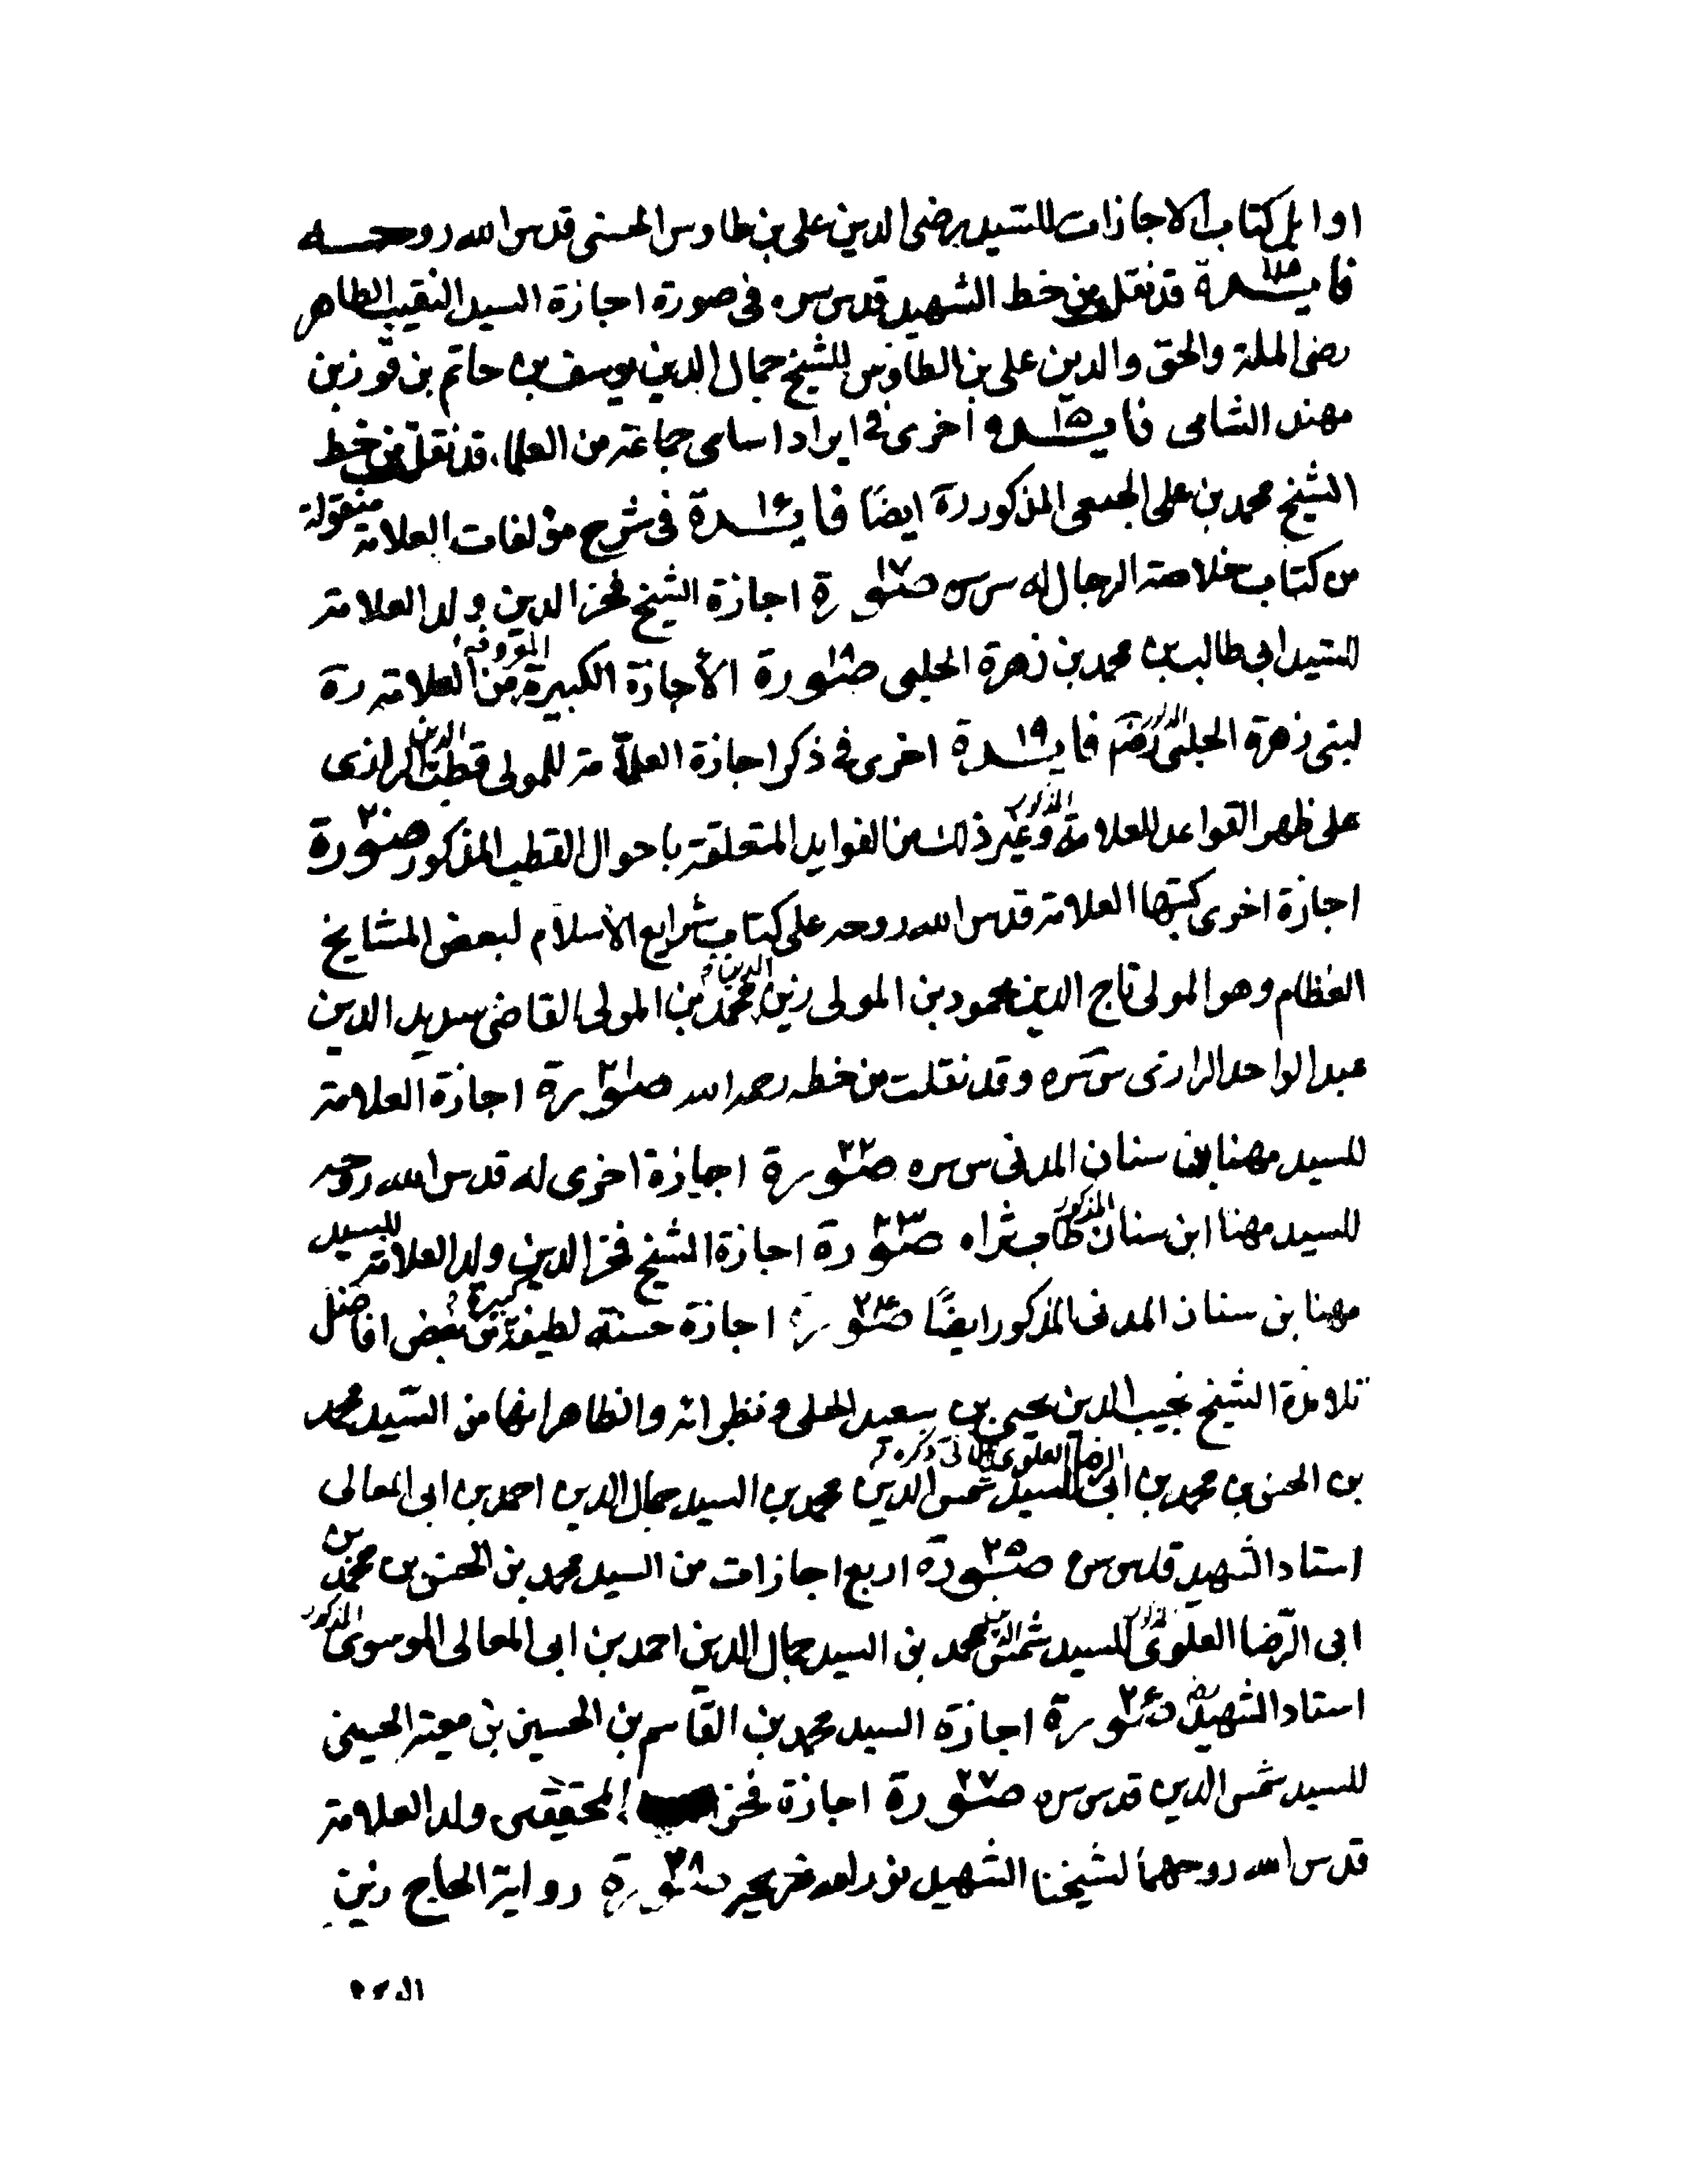 اوایل کتاب الاجازات للسید رضی الدین علی بن طاوس الحسنی قدس الله روحه
فایدة قد نقل من خط الشهید قدس سره فی صورة اجازة السید النقیب الطاهر
رضی الملة والحق والدین علی بن الطاوس للشیخ جمال الدین یوسف بن حاتم بن فوز بن
مهند الشامی فایده ۱۵ اخری فی ایراد اسامی جماعة من العلماء قد نقل من خط
الشیخ محمد بن علی الجبعی المذکور ره ایضًا فایدة ۱۶ فی شرح مؤلفات العلامة منقولة
من کتاب خلاصة الرجال له س سره صورة ۱۷ اجازة الشیخ فخر الدین ولد العلامة
للسید ابی طالب بن محمد بن زهرة الحلبی صورة ۱۸ الأجازة الکبیرة المعروفة من العلامة ره
لبنی زهرة الحلبی فایدة ۱۹ اخری فی ذکر اجازة العلّامة للمولی قطب الدین الرازی
علی ظهر القواعد للعلامة المذکور وغیر ذلک من الفواید المتعلقة باحوال القطب المذکور صورة ۲۰
اجازة اخری کتبها العلامة قدس الله روحه علی کتاب شرایع الأسلام لبعض المشایخ
العظام وهو المولی تاج الدین محمود بن المولی زین الدین محمد بن المولی القاضی سدید الدین
عبد الواحد الرازی س سره وقد نقلت من خطه رحمه الله صورة ۲۱ اجازة العلامة
للسید مهنا بن سنان المدنی س سره صورة ۲۲ اجازة اخری له قدس الله روحه
للسید مهنا ابن سنان المذکور طاب ثراه صورة ۲۳ اجازة الشیخ فخر الدین ولد العلامة للسید
مهنا بن سنان المدنی المذکور ایضًا صورة ۲۴ اجازة حسنة لطیفة کبیرة من بعض افاضل
تلامذة الشیخ نجیب الدین یحیی بن سعید الحلی و نظرائه والظاهر انها من السّید محمد
بن الحسن بن محمد بن ابی الرضا العلوی الآتی ذکره للسید شمس الدین محمد بن السید جمال الدین احمد بن ابی المعالی
استاد الشهید قدس سره صورة ۲۵ اربع اجازات من السید محمد بن الحسن بن محمد بن
ابی الرّضا العلوی للسید شمس الدین محمد بن السید جمال الدین احمد بن ابی المعالی الموسوی المذکور
استاد الشهید صورة ۲۶ اجازة السید محمد بن القاسم بن الحسین بن معیة الحسینی
للسید شمس الدین قدس سره صورة ۲۷ اجازة فخر المحققین ولد العلامة
قدس الله روحهما لشیخنا الشهید نور الله ضریحه صورة ۲۸ روایة الحاج زین